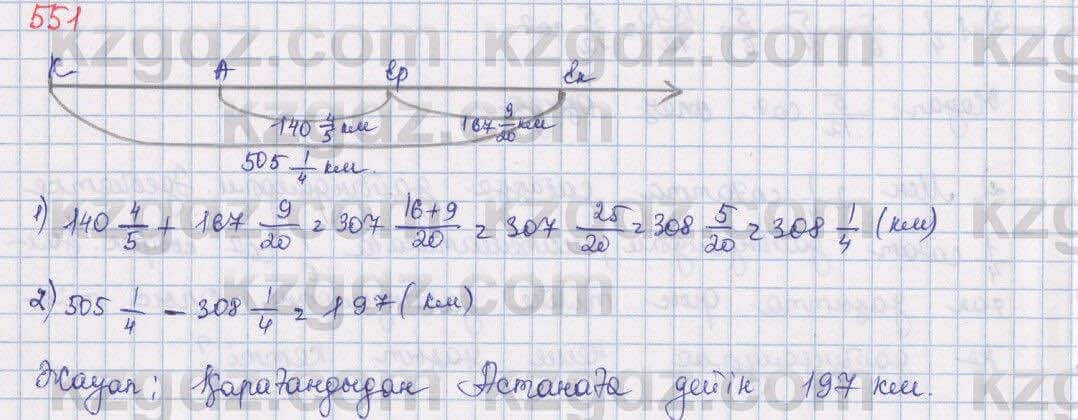 551
К А Ер Ек
140 4/5 км 167 9/20 км
505 1/4 км.
1) 140 4/5 + 167 9/20 = 307 16+9/20 = 307 25/20 = 308 5/20 = 308 1/4 (км)
2) 505 1/4 - 308 1/4 = 197 (км)
Жауап: Қарағандыдан Астанаға дейін 197 км.
kzgdz.com